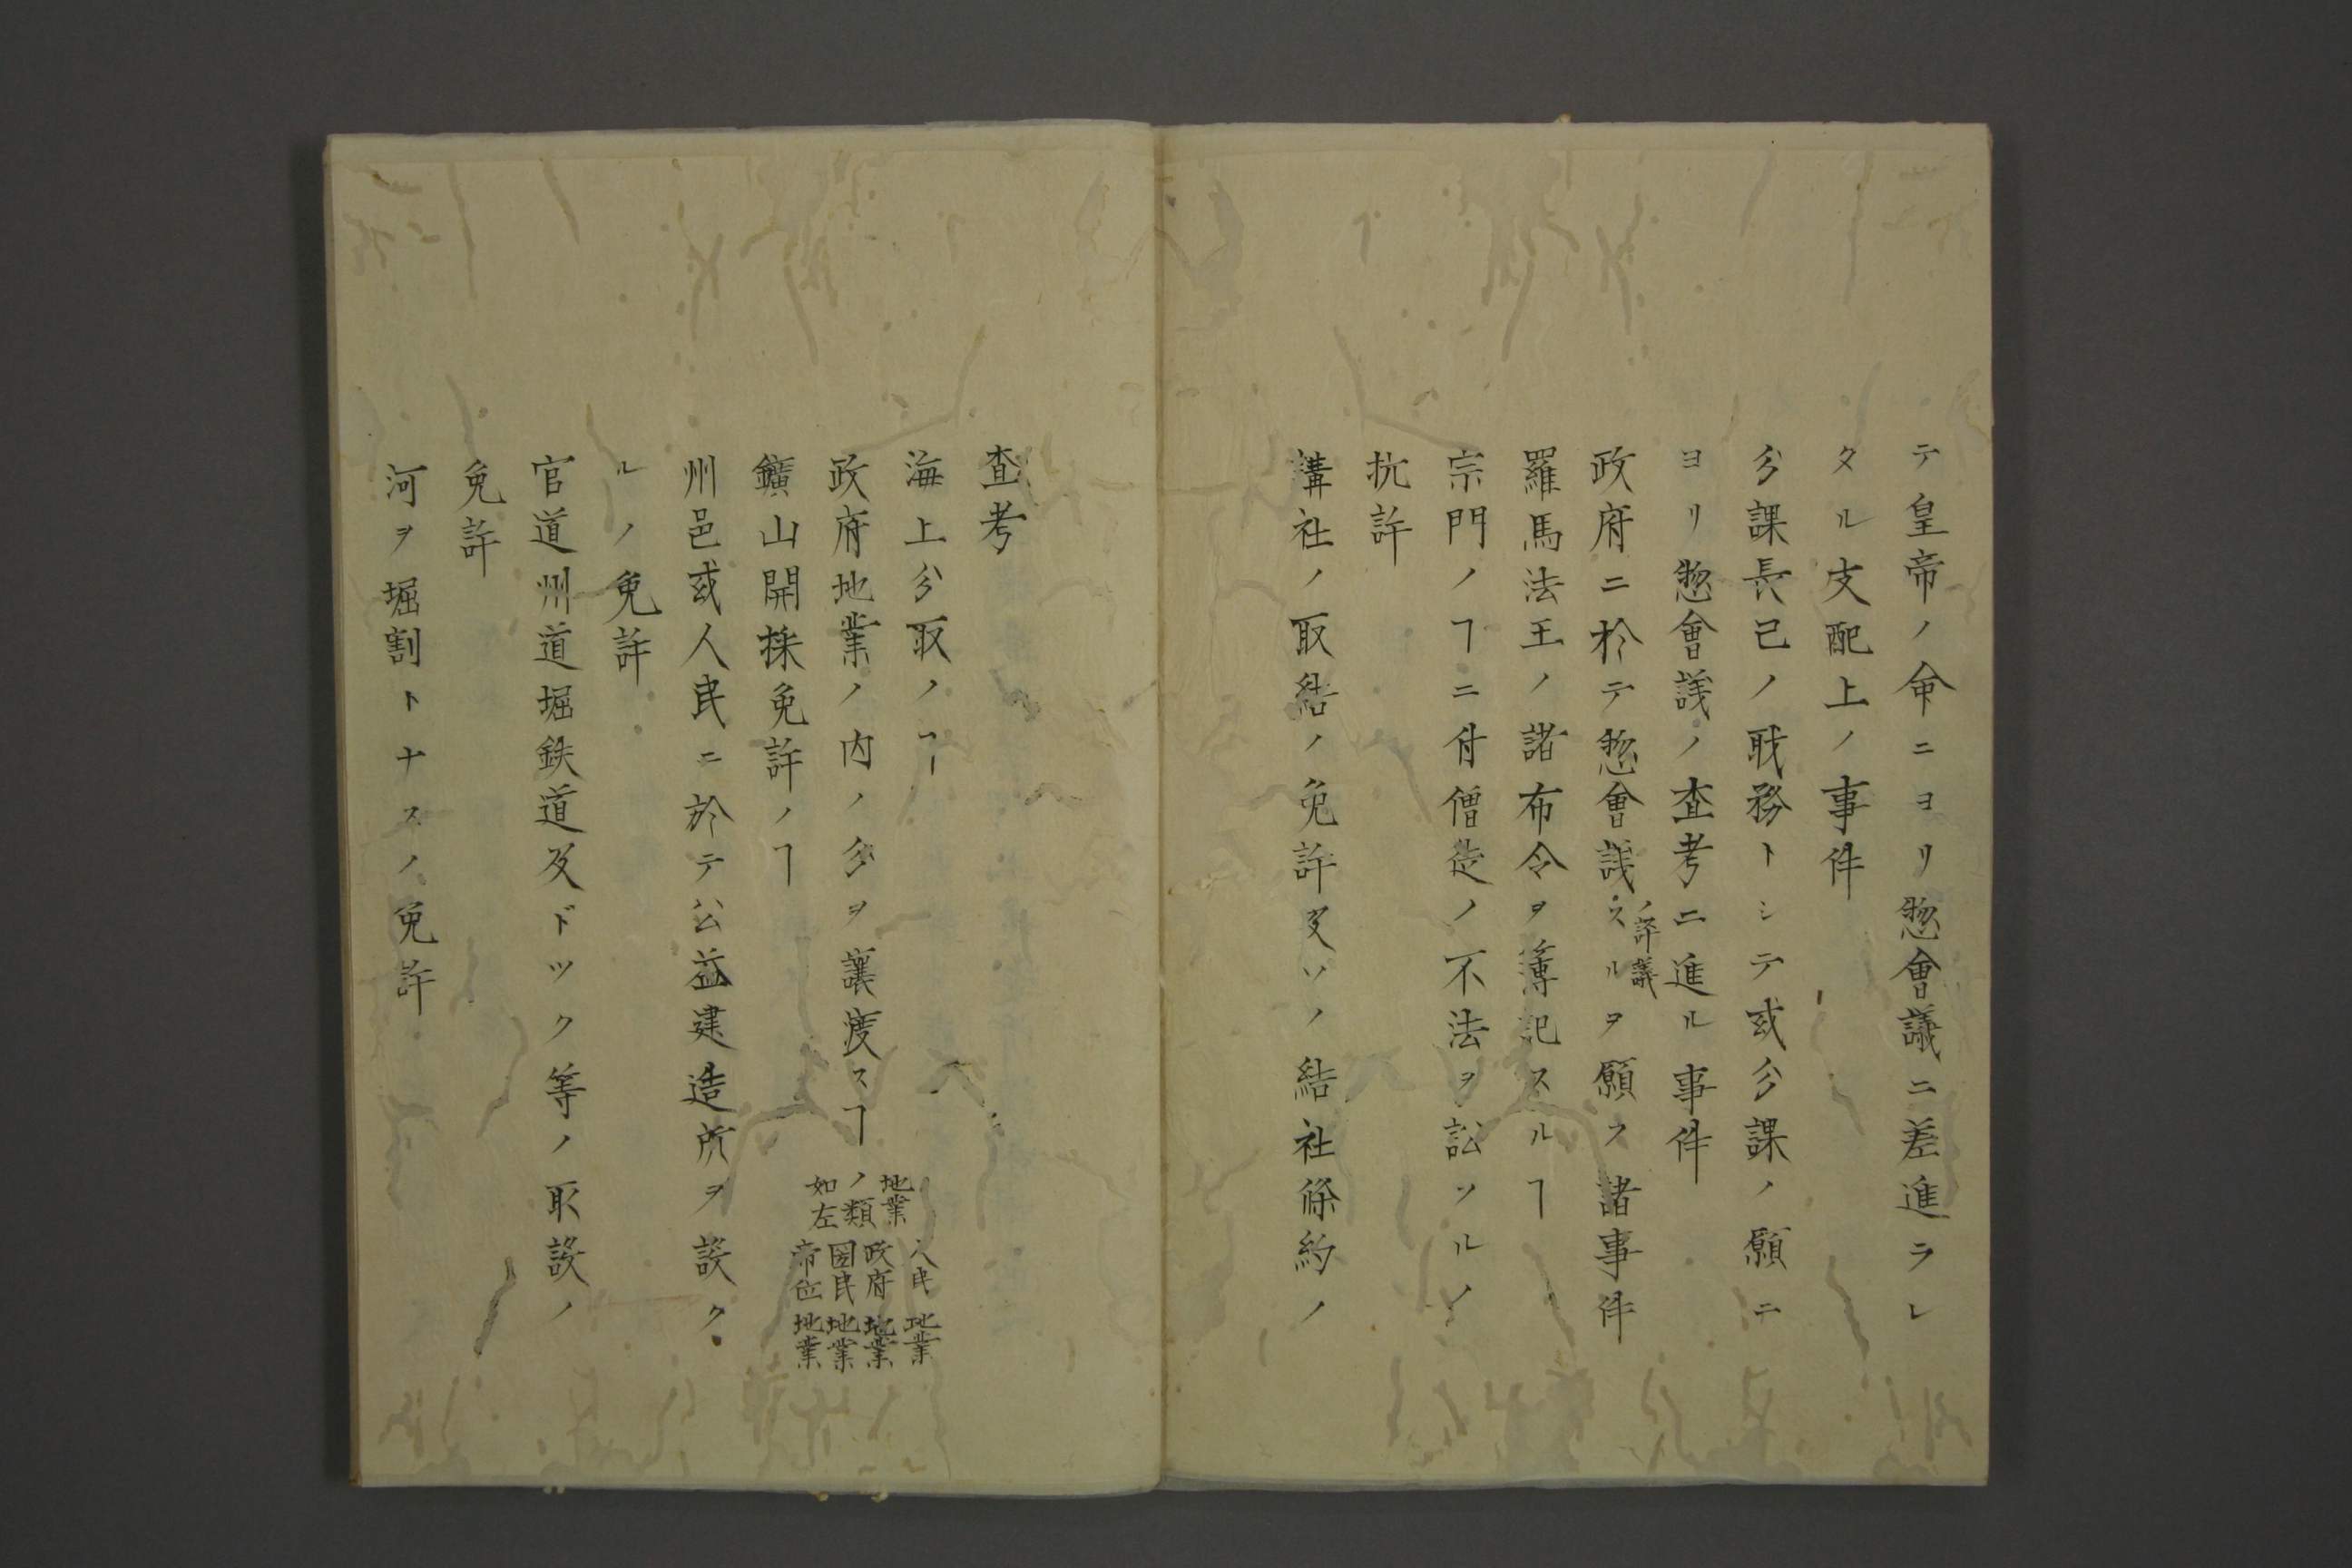 テ皇帝ノ命ニヨリ惣會議ニ差進ラレ
タル支配上ノ事件
分課長己ノ職務トシテ或分課ノ願ニ
ヨリ惣會議ノ査考ニ進ル事件
政府ニ於テ惣會議スルヲ願フ諸事件
ノ評議
羅馬法王ノ諸布令ヲ簿記スルヿ
宗門ノヿニ付僧徒ノ不法ヲ訟ソルノ
抗許
講社ノ取結ノ免許及ソノ結社條約ノ
査考
海上分取ノヿ
政府地業ノ内ノ分ヲ讓渡スヿ
地業
ノ類
如左
人民地業
政府地業
国民地業
帝位地業
鑛山開採免許ノヿ
州邑或人民ニ於テ公益建造所ヲ設ク
ルノ免許
官道州道堀鉄道及ドツク等ノ取設ノ
免許
河ヲ堀割トナスノ免許